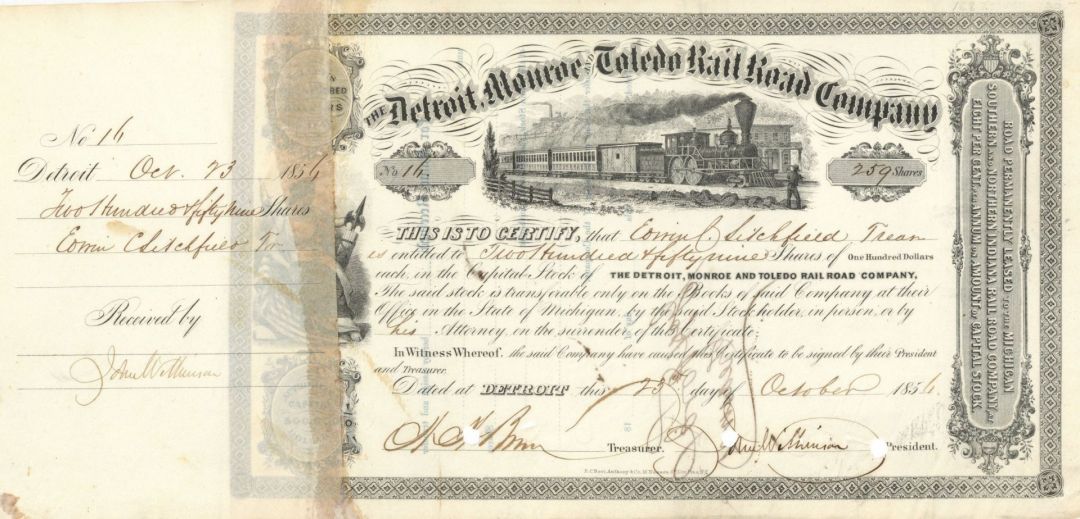 No 16
Detroit Oct. 23 1856
Two Hundred & fifty nine Shares
Edwin C Litchfield Tr
Received by
John Wilkinson
THE Detroit, Monroe AND Toledo Rail Road Company
No 16.
259 Shares
THIS IS TO CERTIFY, that Edwin C. Litchfield Treas
is entitled to Two Hundred & fifty nine Shares of One Hundred Dollars
each, in the Capital Stock of THE DETROIT, MONROE AND TOLEDO RAIL ROAD COMPANY,
The said stock is transferable only on the Books of said Company at their
Office in the State of Michigan, by the said Stockholder, in person, or by
his Attorney, on the surrender of this Certificate.
In Witness Whereof, the said Company have caused this Certificate to be signed by their President
and Treasurer.
Dated at DETROIT this 23d day of October 1856
Treasurer. John Wilkinson President.
ROAD PERMANENTLY LEASED TO THE MICHIGAN
SOUTHERN AND NORTHERN INDIANA RAIL ROAD COMPANY, AT
EIGHT PER CENT. PER ANNUM ON AMOUNT OF CAPITAL STOCK